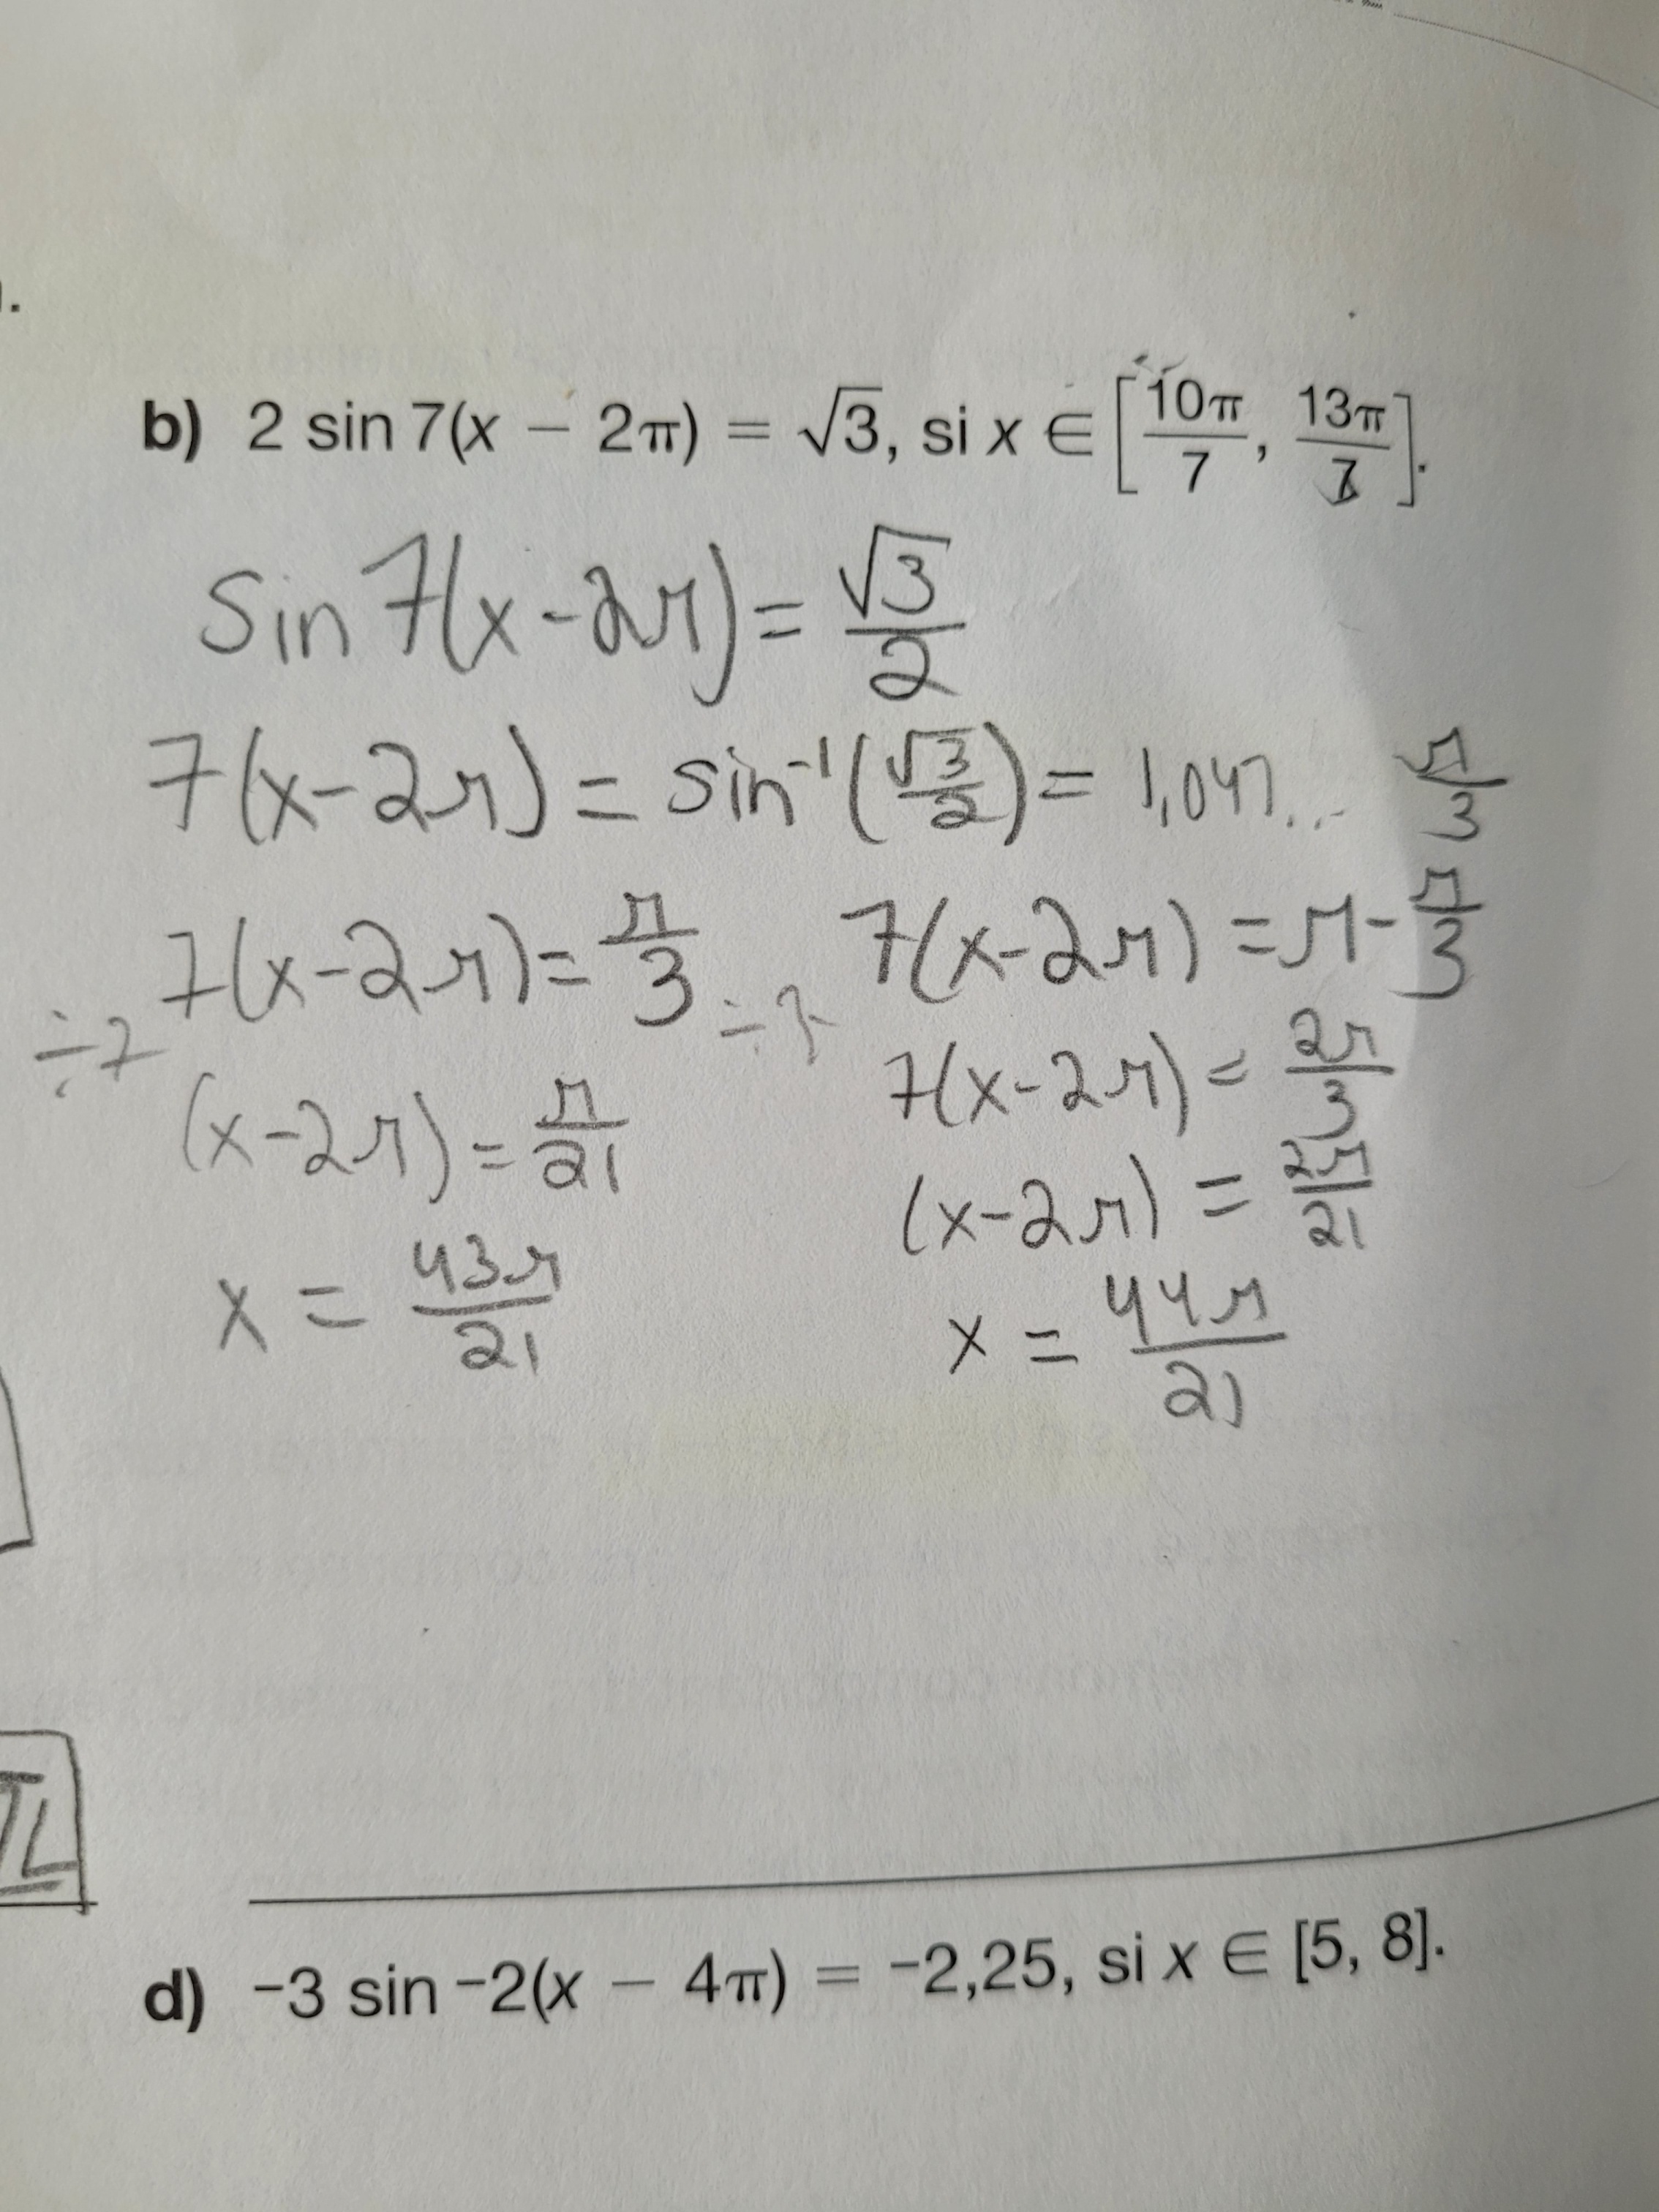 b) 2 sin 7(x − 2π) = √3, si x ∈ [10π/7, 13π/7].
sin 7(x-2π) = √3/2
7(x-2π) = sin⁻¹(√3/2) = 1,047... π/3
7(x-2π) = π/3 7(x-2π) = π - π/3
÷7 ÷7 7(x-2π) = 2π/3
(x-2π) = π/21 (x-2π) = 2π/21
x = 43π/21 x = 44π/21
d) −3 sin −2(x − 4π) = −2,25, si x ∈ [5, 8].